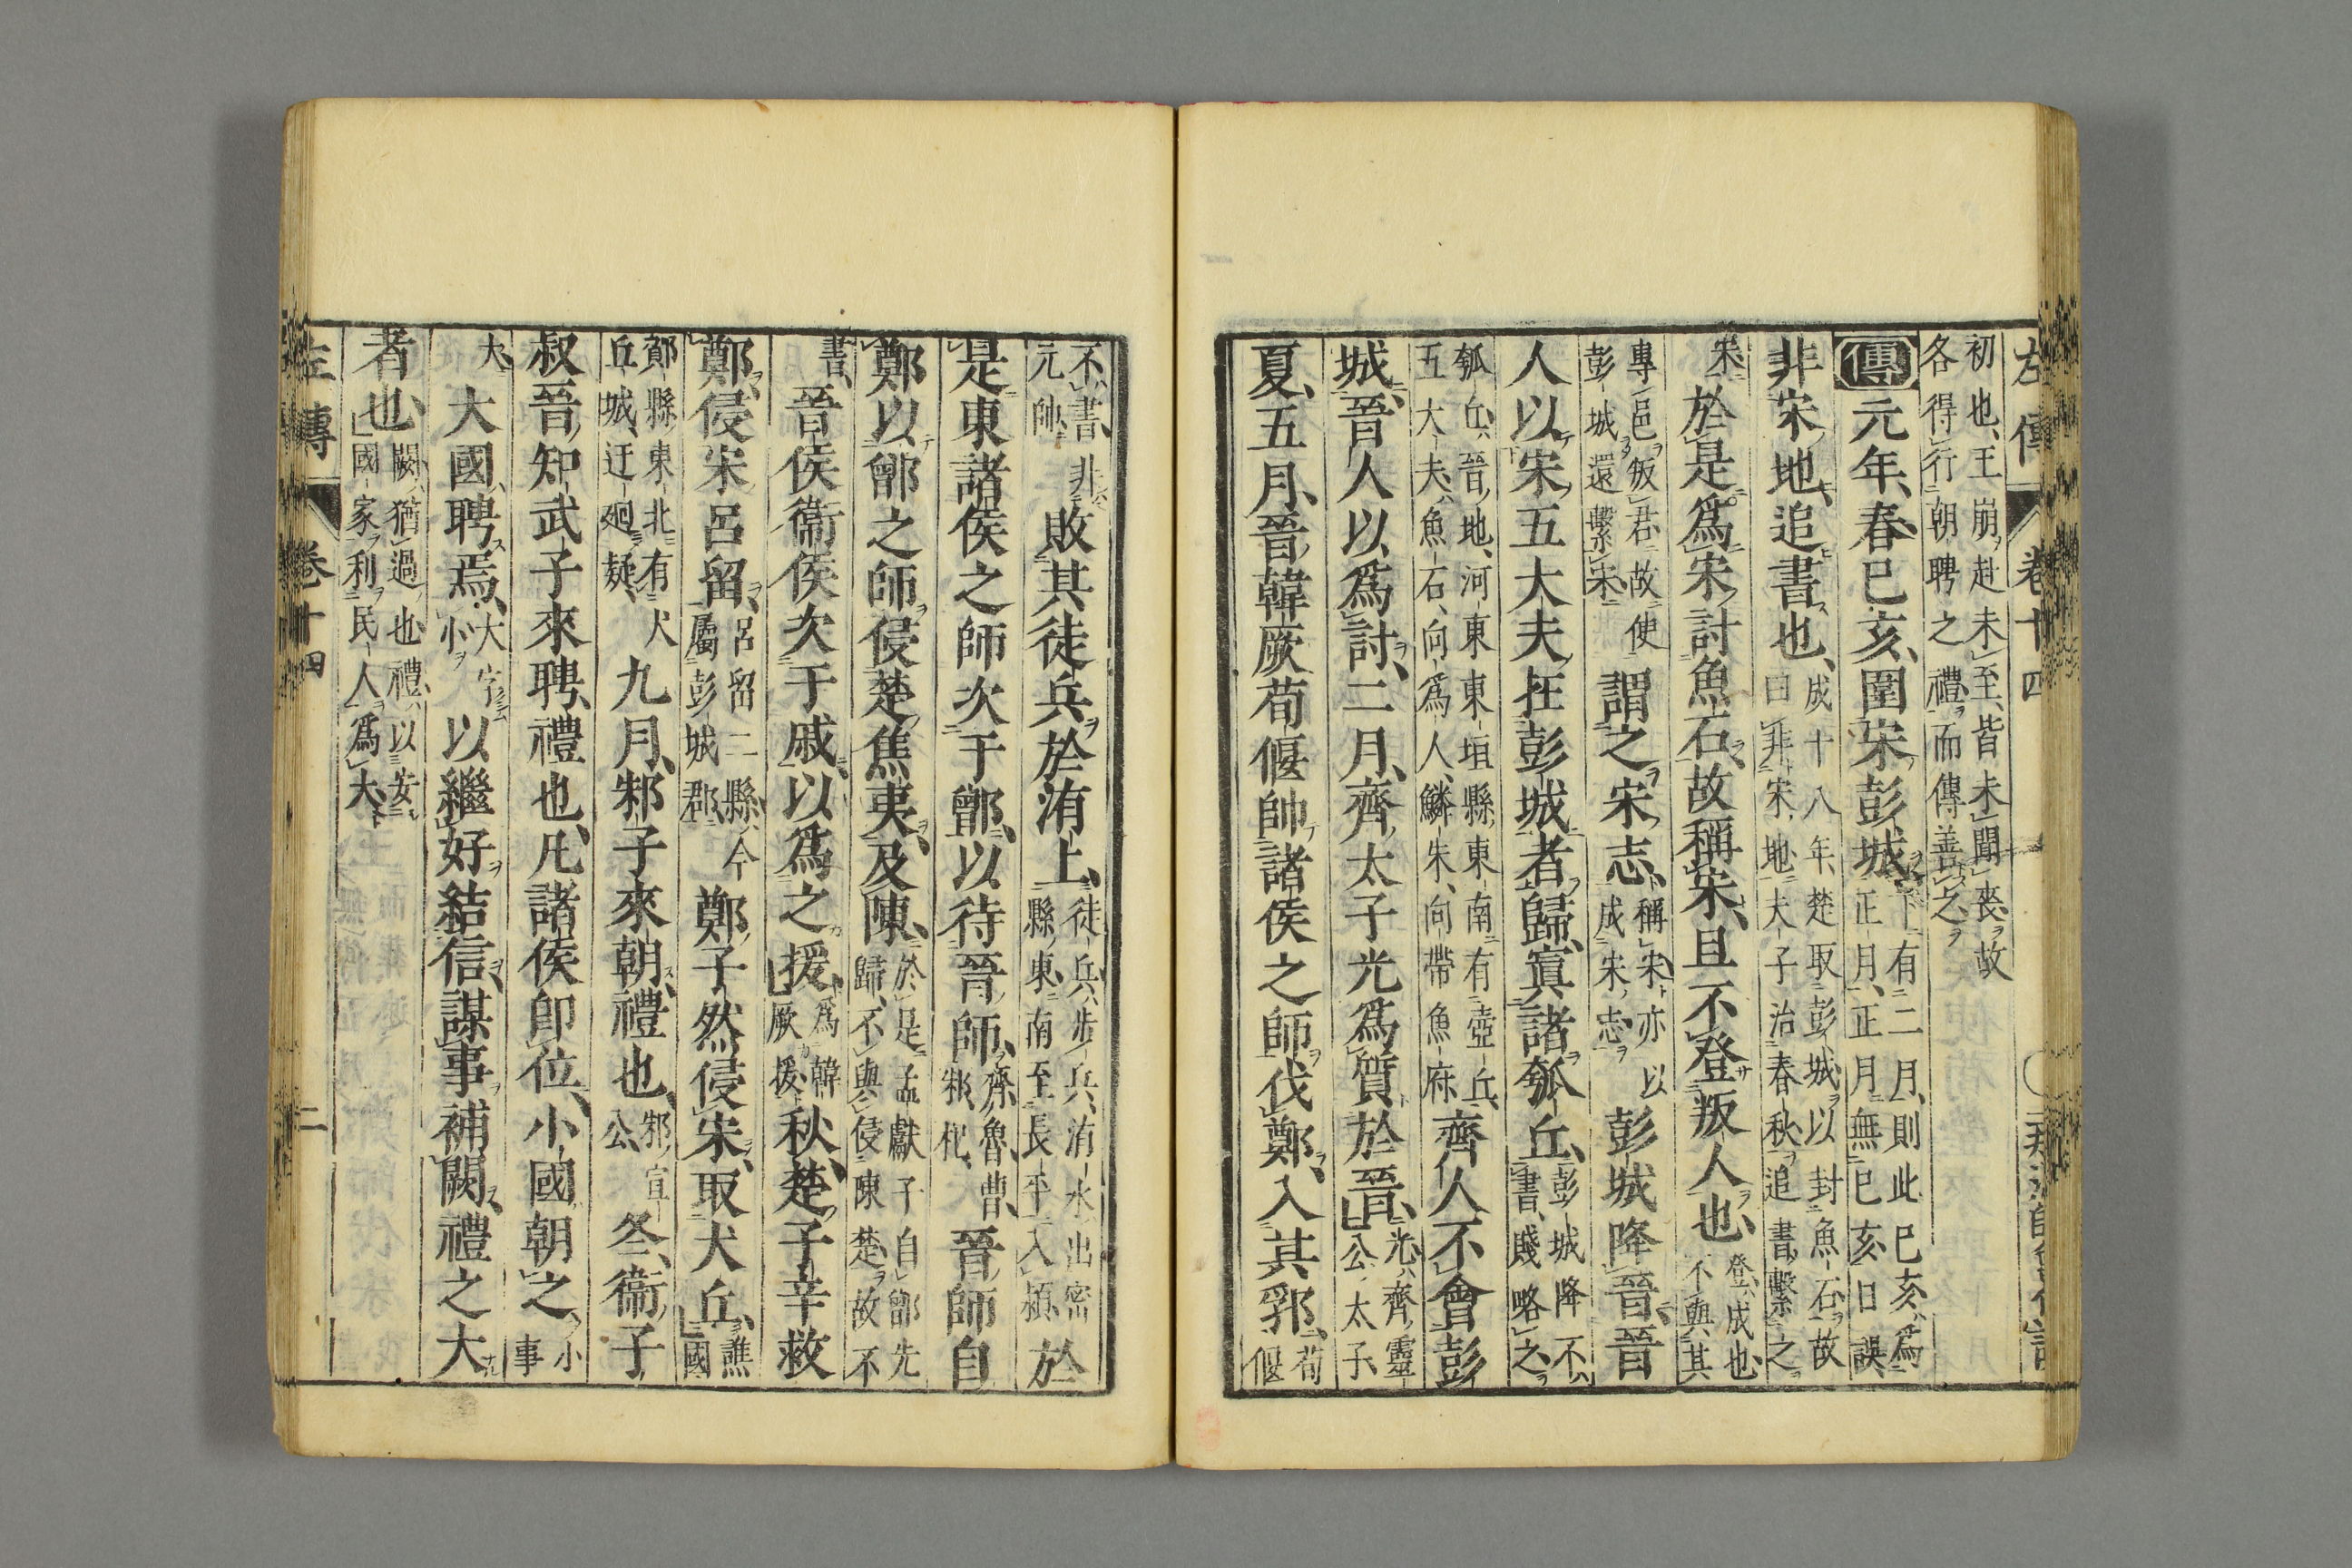 左傳 卷十四
初也、王崩赴未至、皆未聞喪、故
各得行朝聘之禮、而傳善之、
傳元年、春、己亥、圍宋彭城、下有二月、則此己亥、爲
正月、正月無己亥、日誤
非宋地、追書也、成十八年、楚取彭城、以封魚石、故
曰非宋地、夫子治春秋、追書繫之
宋、於是爲宋討魚石、故稱宋、且不登叛人也、登、成也、
不與其
專邑叛君、故使
彭城還繫宋、謂之宋志、稱宋、亦以
成宋志、彭城降晉、晉
人以宋五大夫在彭城者歸、寘諸瓠丘、彭城降不
書、賤略之、
瓠丘、晉地、河東東垣縣東南有壺丘、
五大夫、魚石、向爲人、鱗朱、向帶、魚府、齊人不會彭
城、晉人以爲討、二月、齊太子光爲質於晉、光、齊靈
公太子、
夏、五月、晉韓厥荀偃帥諸侯之師、伐鄭、入其郛、荀
偃
不書、非
元帥、敗其徒兵於洧上、徒兵、步兵、洧水出密
縣東、南至長平入潁、於
是東諸侯之師次于鄫、以待晉師、齊、魯、曹、
邾、杞、晉師自
鄭以鄫之師侵楚焦夷、及陳、於是孟獻子自鄫先
歸、不與侵陳楚、故不
書、晉侯衞侯次于戚、以爲之援、爲韓
厥援、秋、楚子辛救
鄭、侵宋呂留、呂留二縣、今
屬彭城郡、鄭子然侵宋、取犬丘、譙國
酇縣東北有犬
丘城、迂廻疑、九月、邾子來朝、禮也、邾宣
公、冬、衞子
叔晉知武子來聘、禮也、凡諸侯卽位、小國朝之、小
事
大、大國聘焉、大字
小、以繼好結信、謀事補闕、禮之大
者也、闕、猶過也、禮以安
國家、利民人、爲大、
左傳 卷十四 二